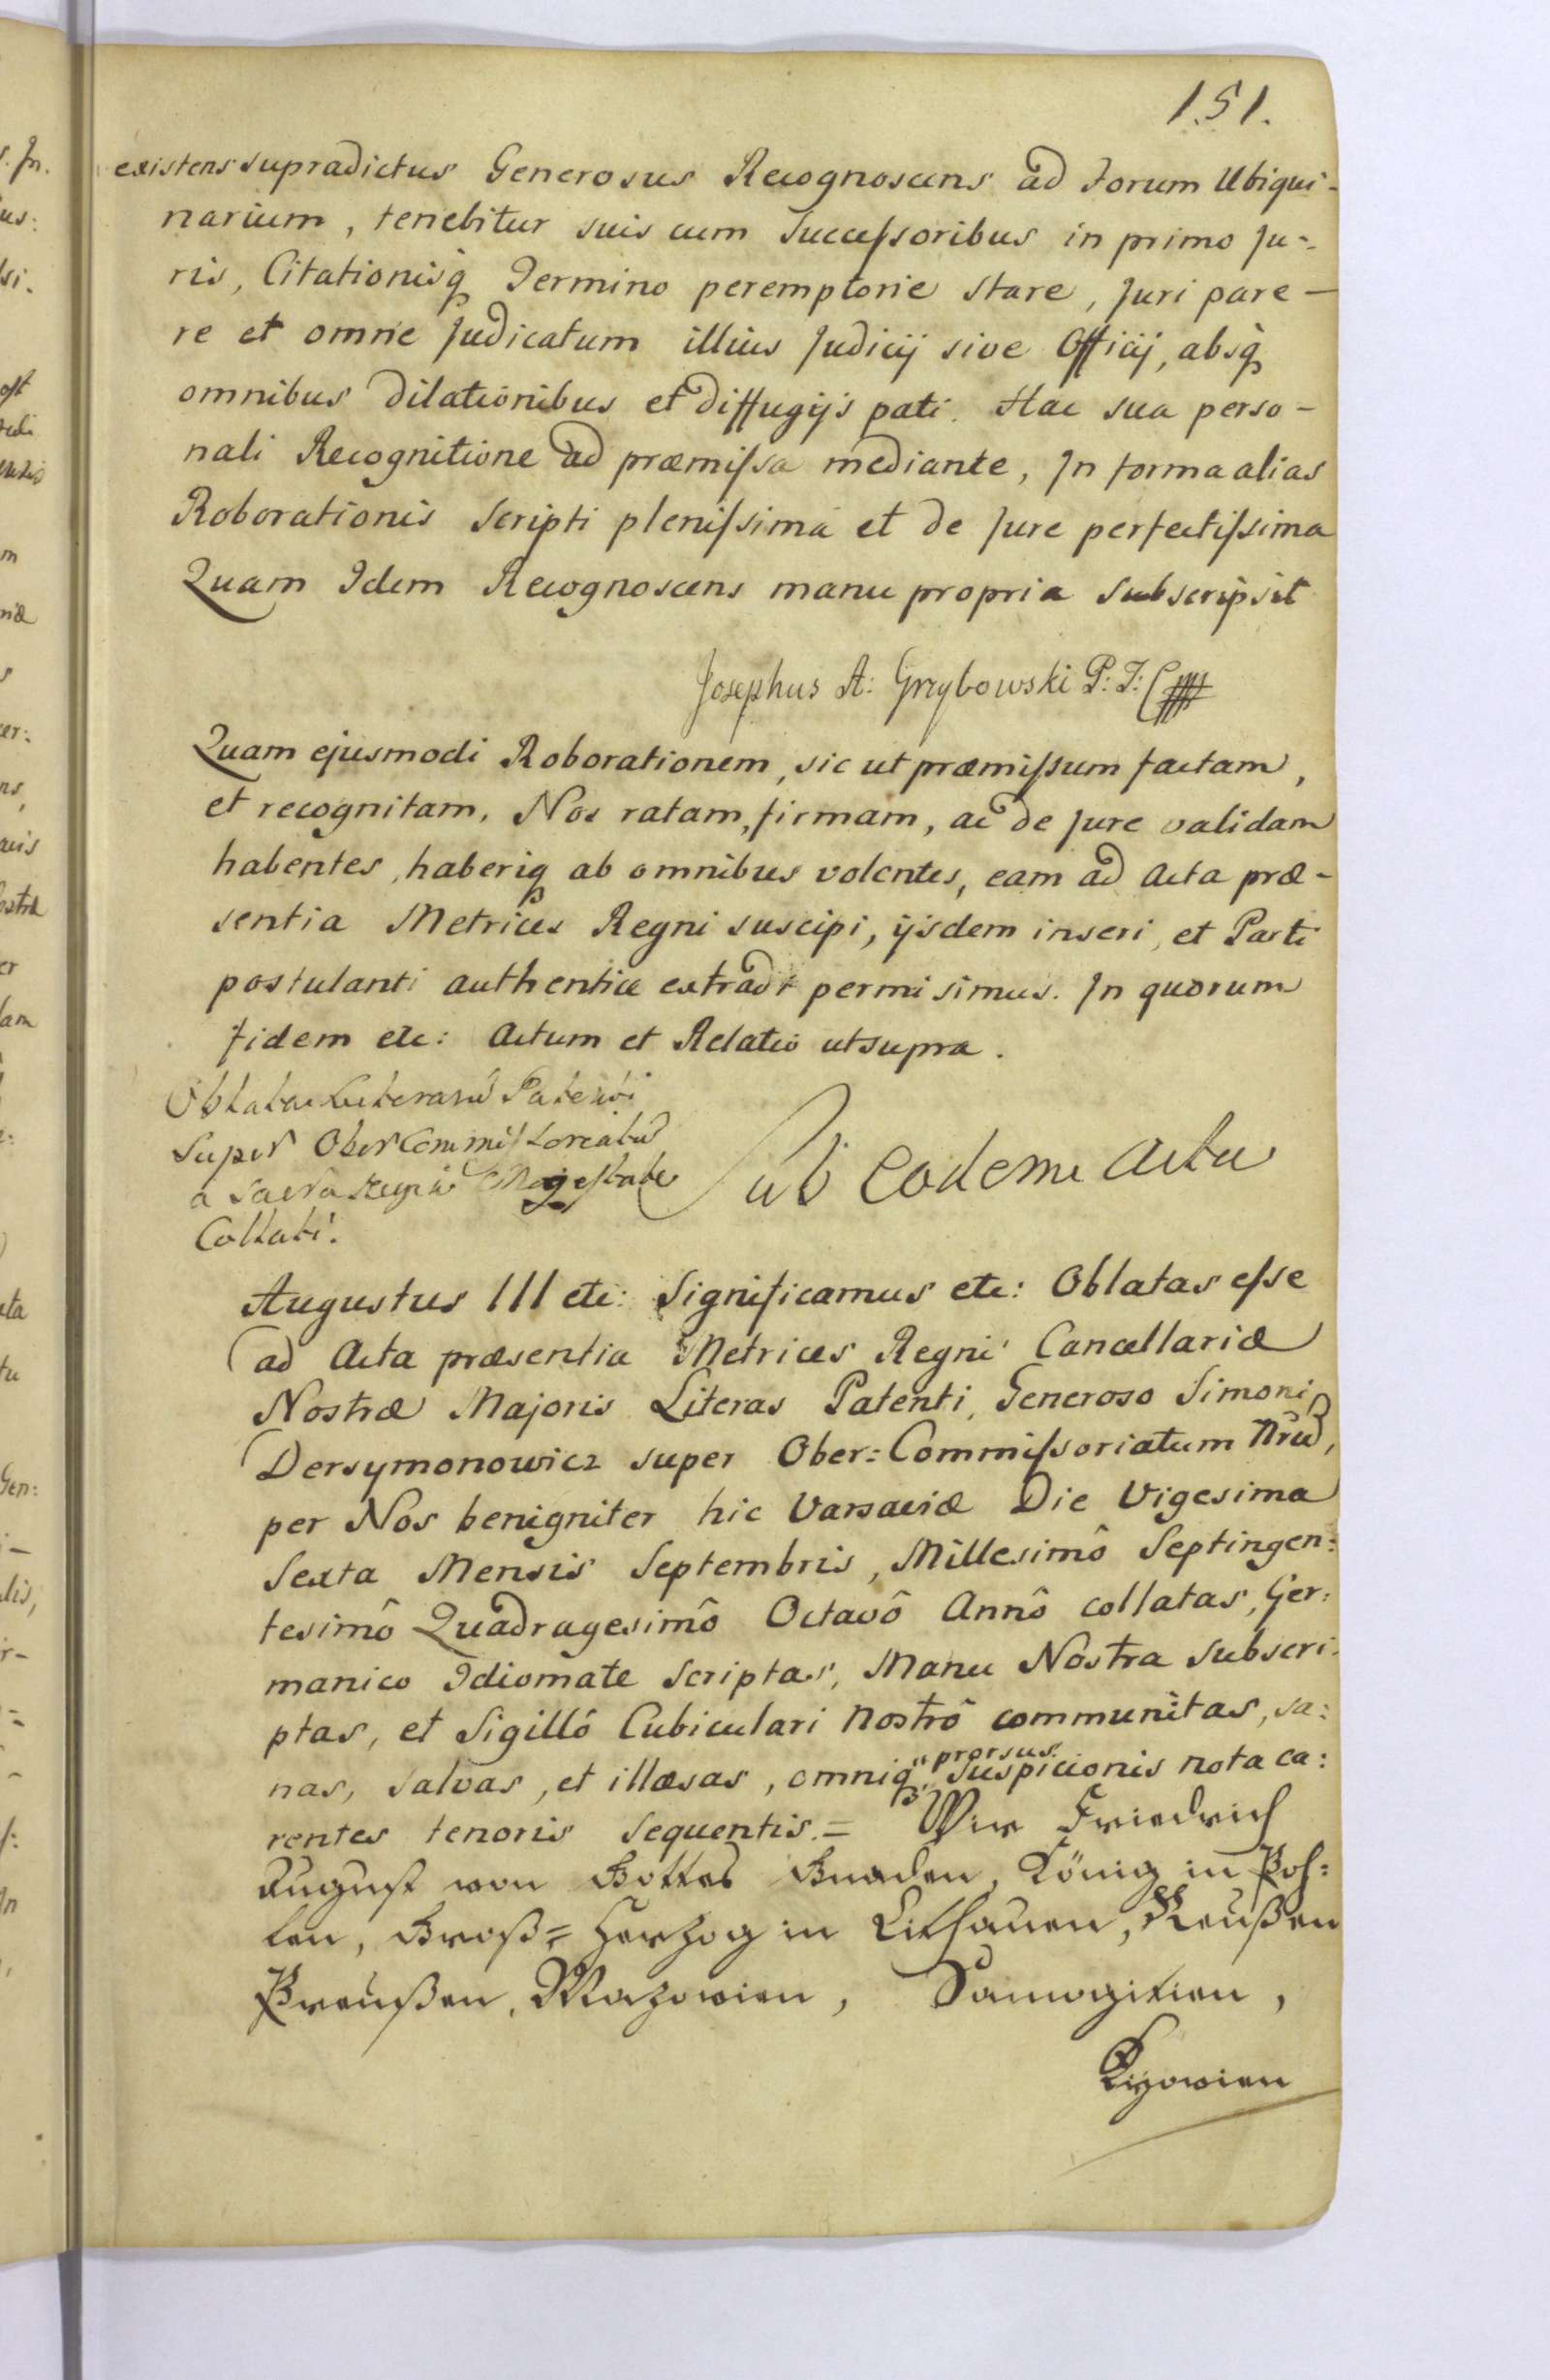 151.
existens supradictus Generosus Recognoscens ad Forum Ubiqui-
narium, tenebitur suis cum Successoribus in primo Ju-
ris, Citationisq Termino peremptorie stare, Juri pare-
re et omne Judicatum illius Judicij sive Officij, absq
omnibus dilationibus et diffugijs pati. Hac sua perso-
nali Recognitione ad præmissa mediante, In forma alias
Roborationis Scripti plenissima et de Jure perfectissima
Quam Idem Recognoscens manu propria subscripsit
Josephus A: Grzybowski P: T:
Quam ejusmodi Roborationem, sic ut præmissum factam,
et recognitam, Nos ratam, firmam, ac de Jure validam
habentes, haberiq ab omnibus volentes, eam ad Acta præ-
sentia Metrices Regni suscipi, ijsdem inseri, et Parti
postulanti authentice extradi permisimus. In quorum
fidem etc: Actum et Relatio utsupra.
Oblata Literarũ Patenti
Super Ober Commissoreatũ
a Sacra Regia Majestate
Collati.
Sub eodem Actu
Augustus III etc: Significamus etc: Oblatas esse
ad Acta præsentia Metrices Regni Cancellariæ
Nostræ Majoris Literas Patenti, Generoso Simoni
Dersymonowicz super Ober=Commissoriatum Nrũ,
per Nos benigniter hic Varsaviæ Die Vigesima
Sexta Mensis Septembris, Millesimô Septingen=
tesimô Quadragesimô Octavô Annô collatas, Ger=
manico Idiomate Scriptas, Manu Nostra subscri=
ptas, et Sigillô Cubiculari nostrô communitas, sa=
nas, salvas, et illæsas, omniq prorsus suspicionis nota ca=
rentes tenoris sequentis. = Wir Friedrich
August von Gottes Gnaden, König in Poh=
len, Groß=Herzog in Litthauen, Reußen
Preußen, Mazovien, Samogitien,
Kyovien